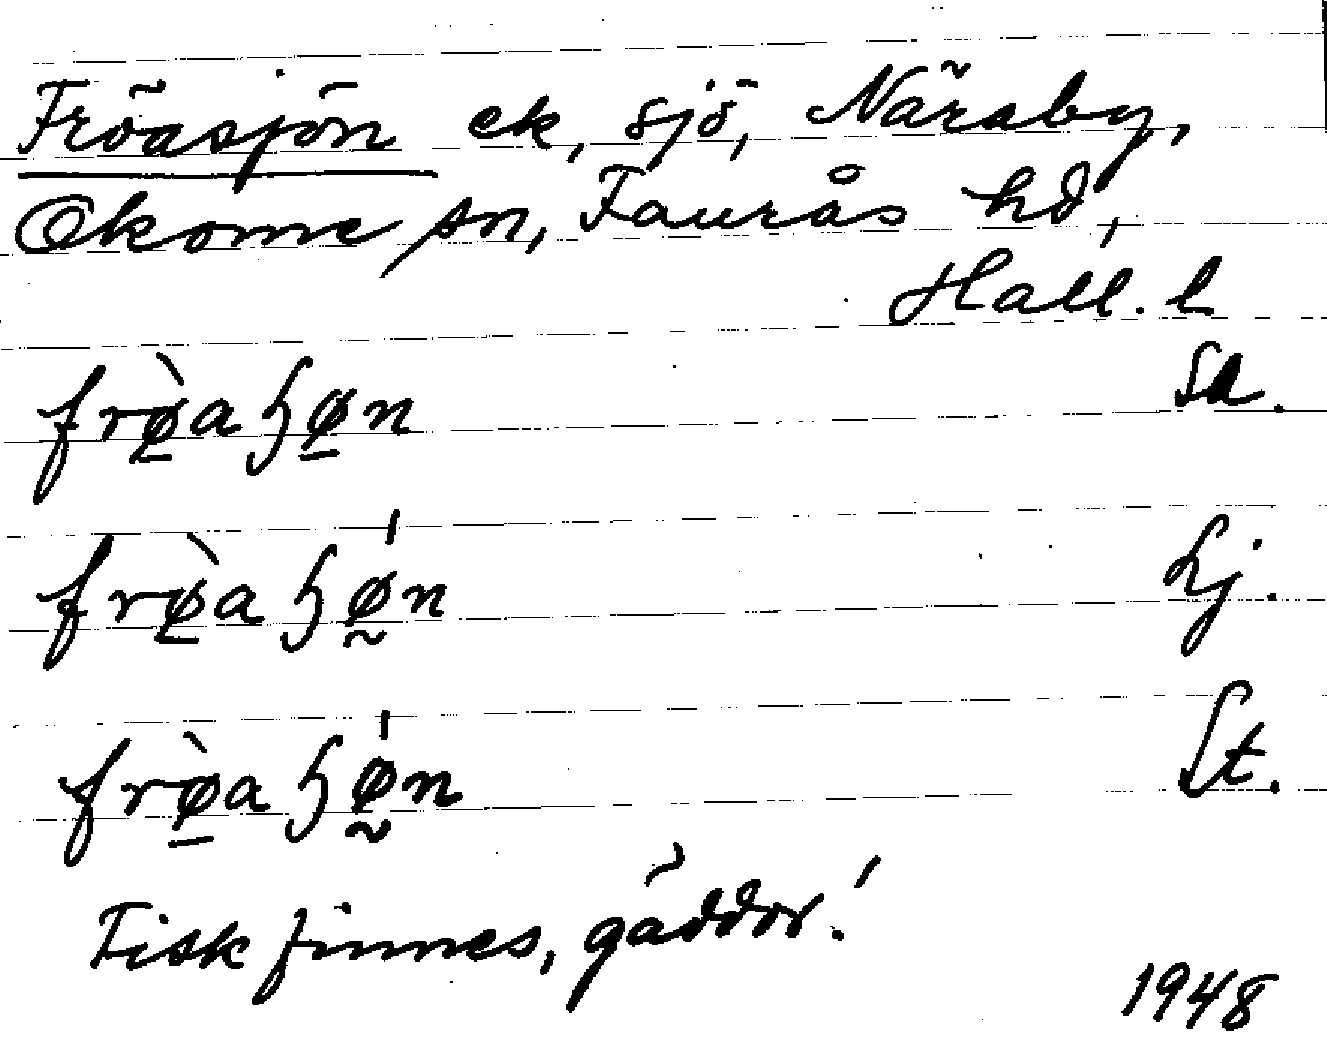 Fröasjön ek, sjö, Näraby,
Okome sn, Faurås hd,
Hall. l
frø̀aɧøn Sa.
frø̀aɧǿn Lj.
frø̀aɧǿn St.
Fisk finnes, gäddor!
1948